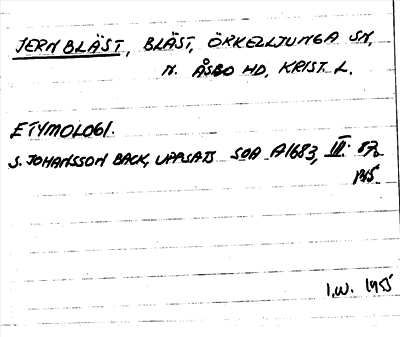 JERNBLÄST, BLÄST, ÖRKELLJUNGA SN,
N. ÅSBO HD, KRIST. L.
ETYMOLOGI.
S. JOHANSSON BACK, UPPSATS SOA A1683, III. 87,
1915
I.W. 1955